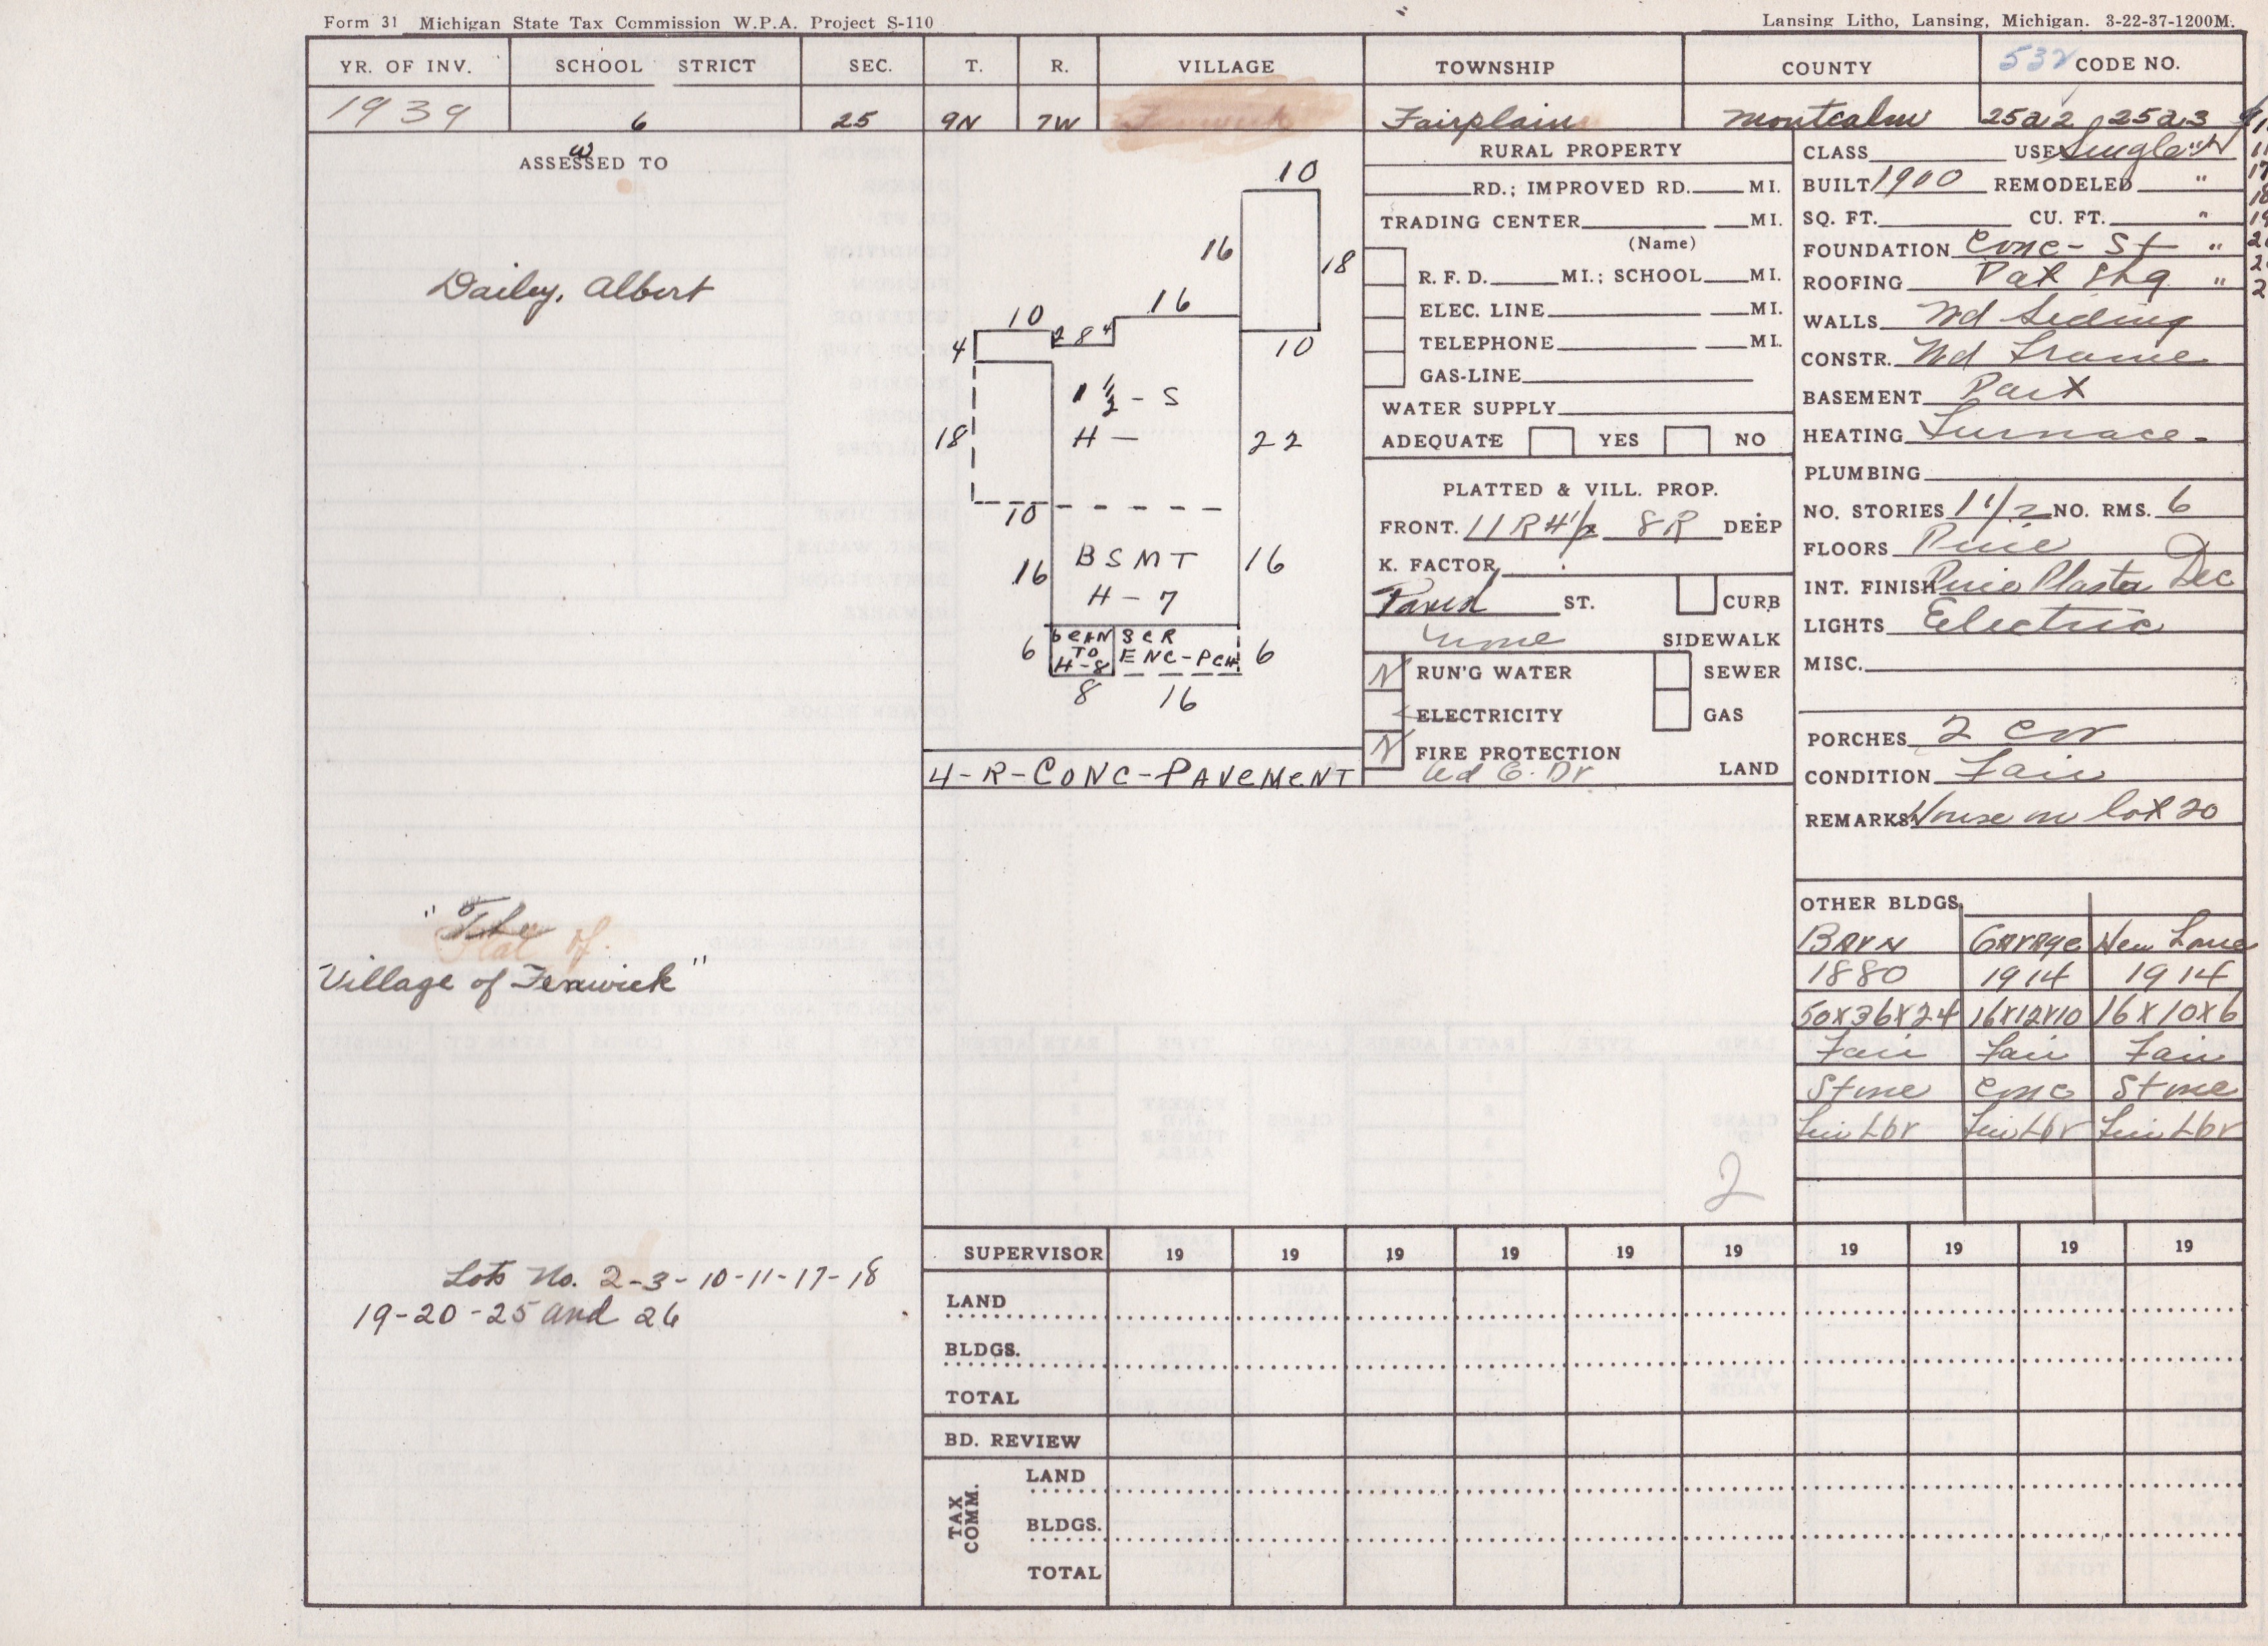 Form 31 Michigan State Tax Commission W.P.A. Project S-110
Lansing Litho, Lansing, Michigan. 3-22-37-1200M.
YR. OF INV. SCHOOL STRICT SEC. T. R. VILLAGE TOWNSHIP COUNTY 532 CODE NO.
1939 6 25 9N 7W Fenwick Fairplain Montcalm 25a2 25a3
ASSESSED TO
W
Dailey, Albert
"The
Plat of
Village of Fenwick"
Lots No. 2-3-10-11-17-18
19-20-25 and 26
10
16
18
16
10
10
2 8 4
4
1 1/2 - S
18
H -
22
10
BSMT
16
16
H - 7
6
8 CAN TO H-8
SCR ENC-PCH
6
8
16
4-R-CONC-PAVEMENT
RURAL PROPERTY
RD.; IMPROVED RD. MI.
TRADING CENTER MI.
(Name)
R. F. D. MI.; SCHOOL MI.
ELEC. LINE MI.
TELEPHONE MI.
GAS-LINE
WATER SUPPLY
ADEQUATE YES NO
PLATTED & VILL. PROP.
FRONT. 11R4 1/2 8R DEEP
K. FACTOR
Paved ST. CURB
none SIDEWALK
N RUN'G WATER SEWER
ELECTRICITY GAS
N FIRE PROTECTION
LAND
CLASS USE Single
BUILT 1900 REMODELED "
SQ. FT. CU. FT. "
FOUNDATION Conc - St "
ROOFING Pat Shg "
WALLS Wd Siding
CONSTR. Wd Frame
BASEMENT Part
HEATING Furnace
PLUMBING
NO. STORIES 1 1/2 NO. RMS. 6
FLOORS Pine
INT. FINISH Pine Plaster Dec
LIGHTS Electric
MISC.
PORCHES 2 Cov
CONDITION Fair
REMARKS House on lot 20
OTHER BLDGS.
Barn Garage Hen House
1880 1914 1914
50X36X24 16X12X10 16X10X6
Fair Fair Fair
Stone Conc Stone
Lbr Lbr Lbr
2
SUPERVISOR 19 19 19 19 19 19 19 19 19 19
LAND
BLDGS.
TOTAL
BD. REVIEW
TAX COMM.
LAND
BLDGS.
TOTAL